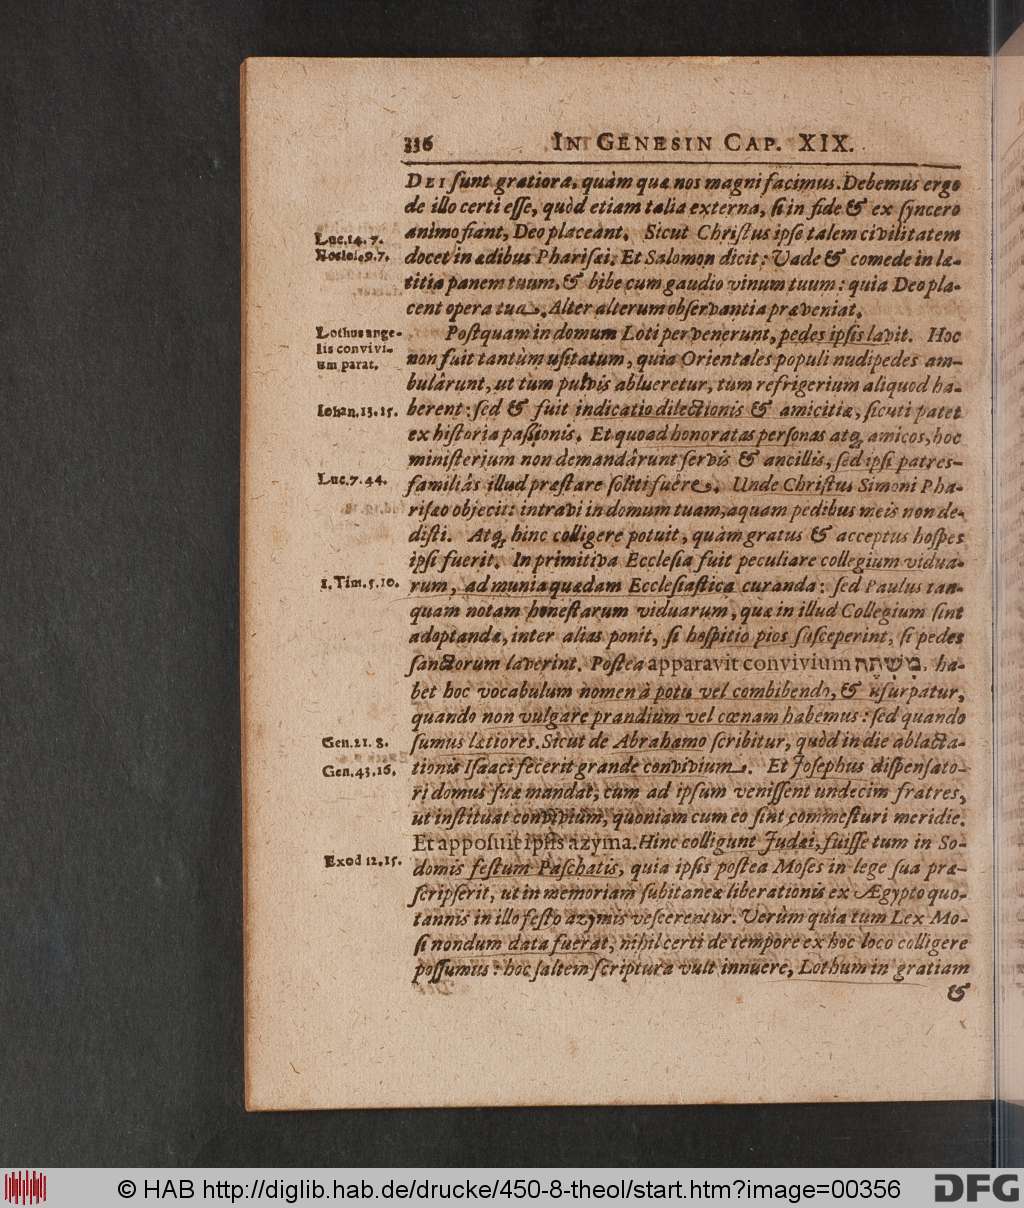 336 IN GENESIN CAP. XIX.
DEI ſunt gratiora, quàm quæ nos magni facimus. Debemus ergo
de illo certi eſſe, quòd etiam talia externa, ſi in fide & ex ſyncero
Luc. 14. 7.
animo fiant, Deo placeant. Sicut Chriſtus ipſe talem civilitatem
docet in ædibus Phariſæi. Et Salomon dicit: Vade & comede in læ-
titia panem tuum, & bibe cum gaudio vinum tuum: quia Deo pla-
cent opera tua. Alter alterum obſervantia præveniat.
Lothus ange-
lis convivi-
um parat.
Poſtquam in domum Loti pervenerunt, pedes ipſis lavit. Hoc
non fuit tantùm uſitatum, quia Orientales populi nudipedes am-
bulârunt, ut tum pulvis ablueretur, tum refrigerium aliquod ha-
Iohan. 13. 15.
berent: ſed & fuit indicatio dilectionis & amicitiæ, ſicuti patet
ex hiſtoria paſſionis. Et quoad honoratas perſonas atq; amicos, hoc
miniſterium non demandârunt ſervis & ancillis, ſed ipſi patres-
Luc. 7. 44.
familiâs illud præſtare ſoliti fuêre. Unde Chriſtus Simoni Pha-
riſæo objecit: intravi in domum tuam, aquam pedibus meis non de-
diſti. Atq; hinc colligere potuit, quàm gratus & acceptus hoſpes
ipſi fuerit. In primitiva Eccleſia fuit peculiare collegium vidua-
1. Tim. 5. 10.
rum, ad munia quædam Eccleſiaſtica curanda: ſed Paulus tan-
quam notam honeſtarum viduarum, quæ in illud Collegium ſint
adoptandæ, inter alias ponit, ſi hoſpitio pios ſuſceperint, ſi pedes
ſanctorum laverint. Poſtea apparavit convivium מִשְׁתֶּה, ha-
bet hoc vocabulum nomen à potu vel combibendo, & uſurpatur,
quando non vulgare prandium vel cœnam habemus: ſed quando
Gen. 21. 8.
ſumus lætiores. Sicut de Abrahamo ſcribitur, quòd in die ablacta-
Gen. 43. 16.
tionis Iſaaci fecerit grande convivium. Et Joſephus diſpenſato-
ri domus ſuæ mandat, cum ad ipſum veniſſent undecim fratres,
ut inſtituat convivium, quoniam cum eo ſint commeſturi meridie.
Et appoſuit ipſis azyma. Hinc colligunt Judæi, fuiſſe tum in So-
Exod 12. 15.
domis feſtum Paſchatis, quia ipſis poſtea Moſes in lege ſua præ-
ſcripſerit, ut in memoriam ſubitaneæ liberationis ex Ægypto quo-
tannis in illo feſto azymis veſcerentur. Verùm quia tum Lex Mo-
ſi nondum data fuerat, nihil certi de tempore ex hoc loco colligere
poſſumus: hoc ſaltem ſcriptura vult innuere, Lothum in gratiam
&
© HAB http://diglib.hab.de/drucke/450-8-theol/start.htm?image=00356
DFG